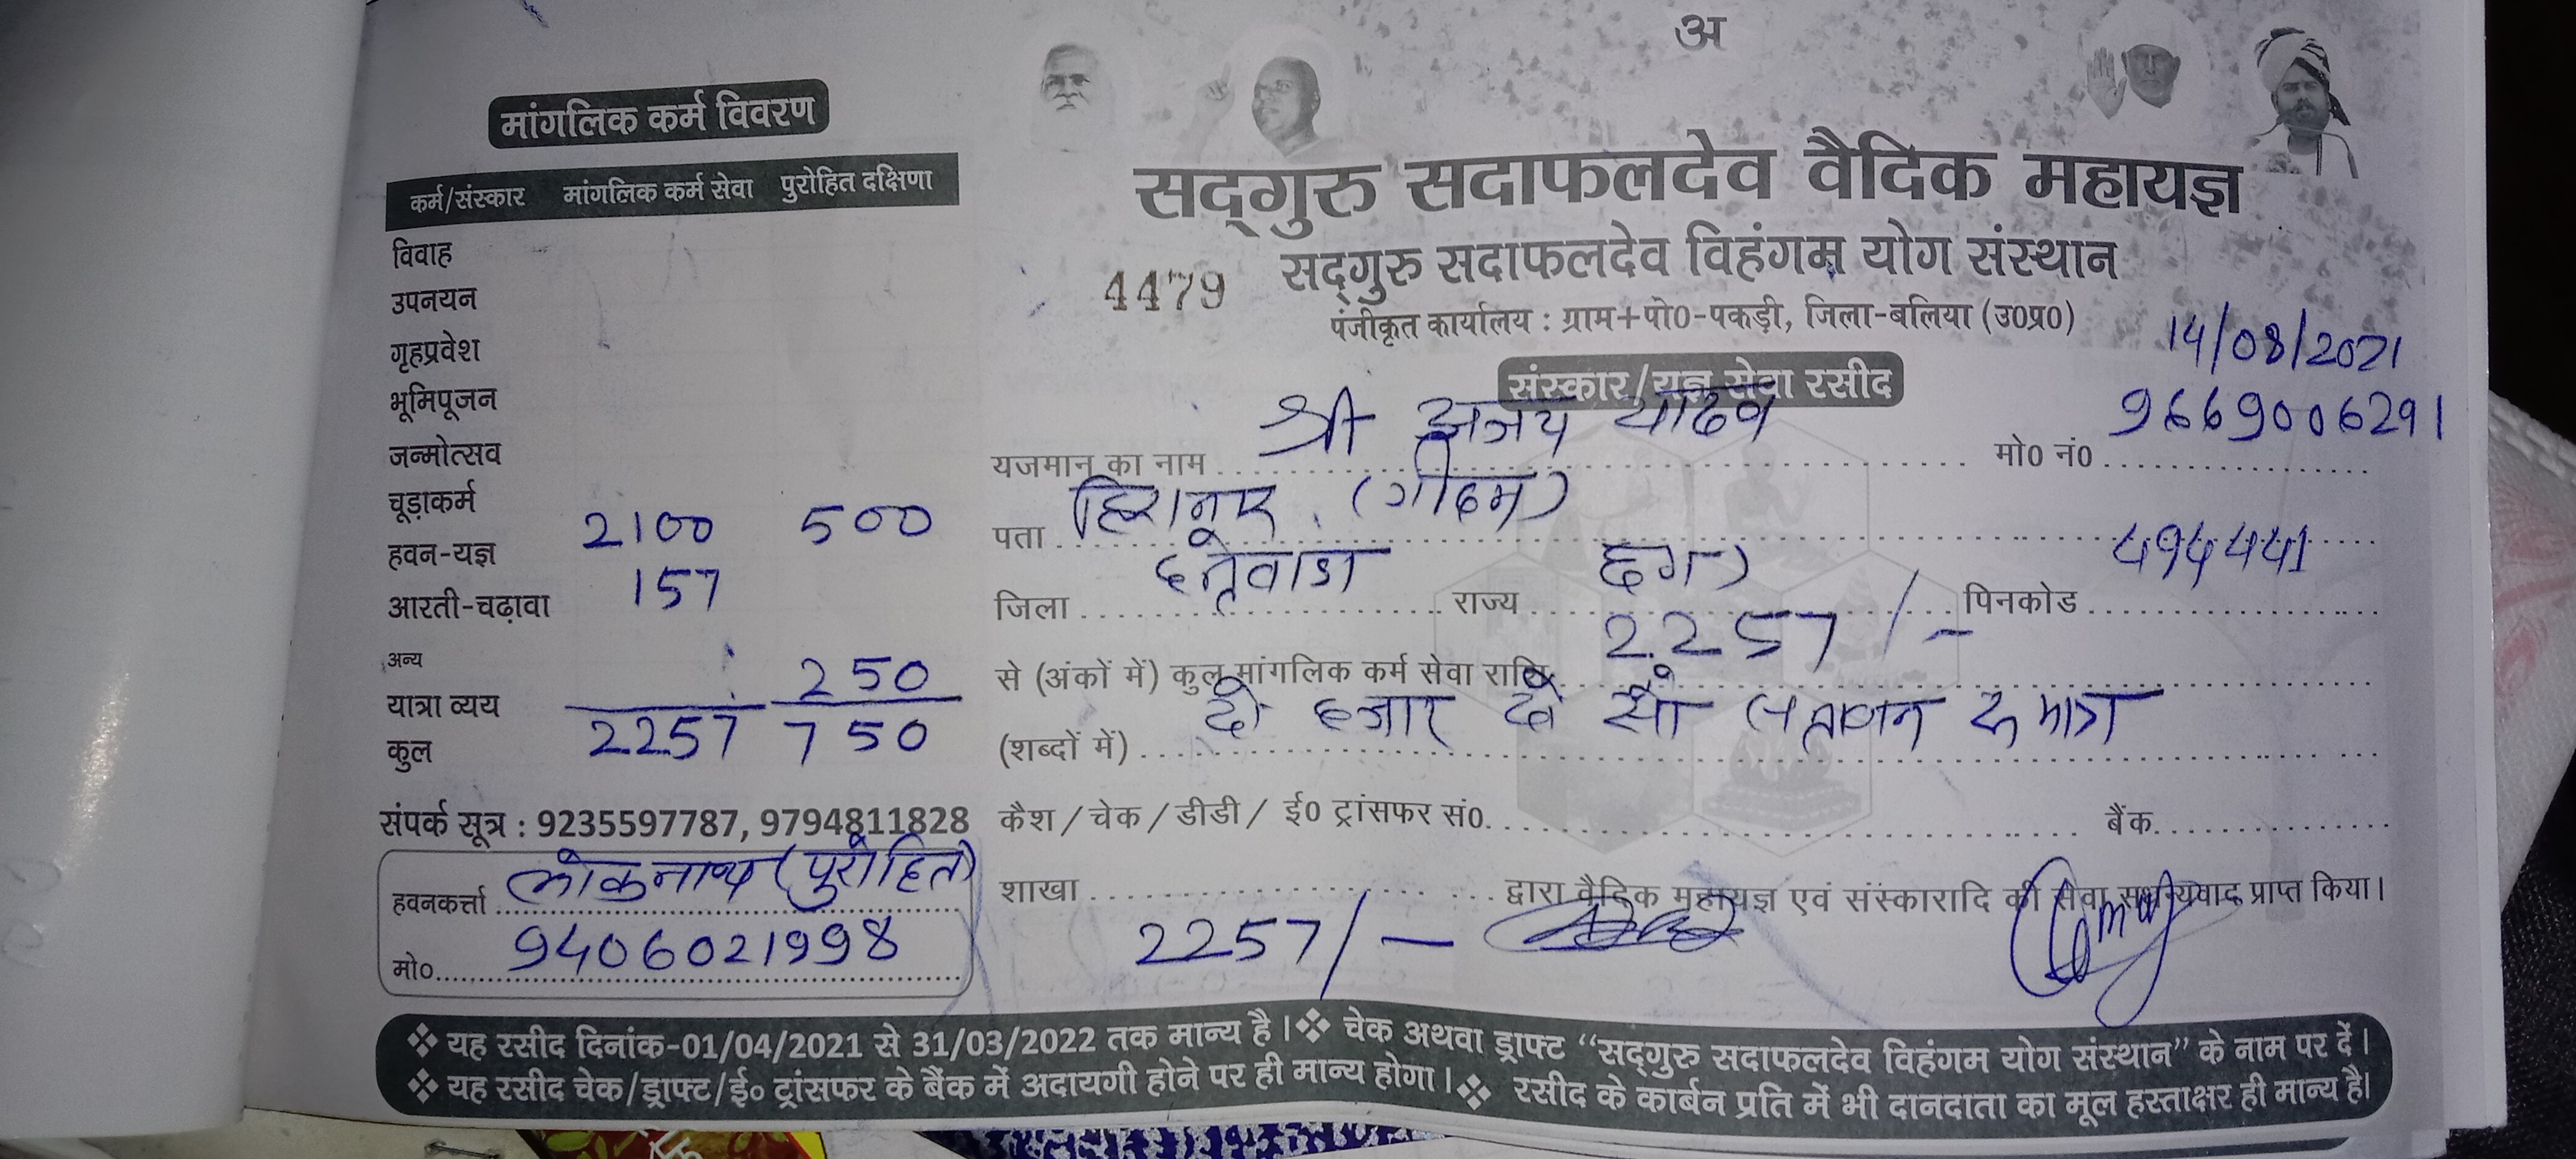 अ
मांगलिक कर्म विवरण
कर्म/संस्कार मांगलिक कर्म सेवा पुरोहित दक्षिणा
विवाह
उपनयन
गृहप्रवेश
भूमिपूजन
जन्मोत्सव
चूड़ाकर्म
हवन-यज्ञ 2100 500
आरती-चढ़ावा 157
अन्य
यात्रा व्यय 250
कुल 2257 750
संपर्क सूत्र : 9235597787, 9794811828
हवनकर्त्ता लोकनाथ (पुरोहित)
मो० 9406021998
सद्गुरु सदाफलदेव वैदिक महायज्ञ
सद्गुरु सदाफलदेव विहंगम योग संस्थान
4479
पंजीकृत कार्यालय : ग्राम+पो0-पकड़ी, जिला-बलिया (उ0प्र0)
14/08/2021
संस्कार/यज्ञ सेवा रसीद
यजमान का नाम श्री अजय यादव मो0 नं0 9669006291
पता (गीदम)
जिला दन्तेवाडा राज्य छग पिनकोड 494441
से (अंकों में) कुल मांगलिक कर्म सेवा राशि 2257/-
(शब्दों में) दो हजार दो सौ सत्तावन रु मात्र
कैश/चेक/डीडी/ ई0 ट्रांसफर सं0 बैंक
शाखा द्वारा वैदिक महायज्ञ एवं संस्कारादि की सेवा सधन्यवाद प्राप्त किया।
2257/-
❖ यह रसीद दिनांक-01/04/2021 से 31/03/2022 तक मान्य है। ❖ चेक अथवा ड्राफ्ट “सद्गुरु सदाफलदेव विहंगम योग संस्थान” के नाम पर दें।
❖ यह रसीद चेक/ड्राफ्ट/ई० ट्रांसफर के बैंक में अदायगी होने पर ही मान्य होगा। ❖ रसीद के कार्बन प्रति में भी दानदाता का मूल हस्ताक्षर ही मान्य है।